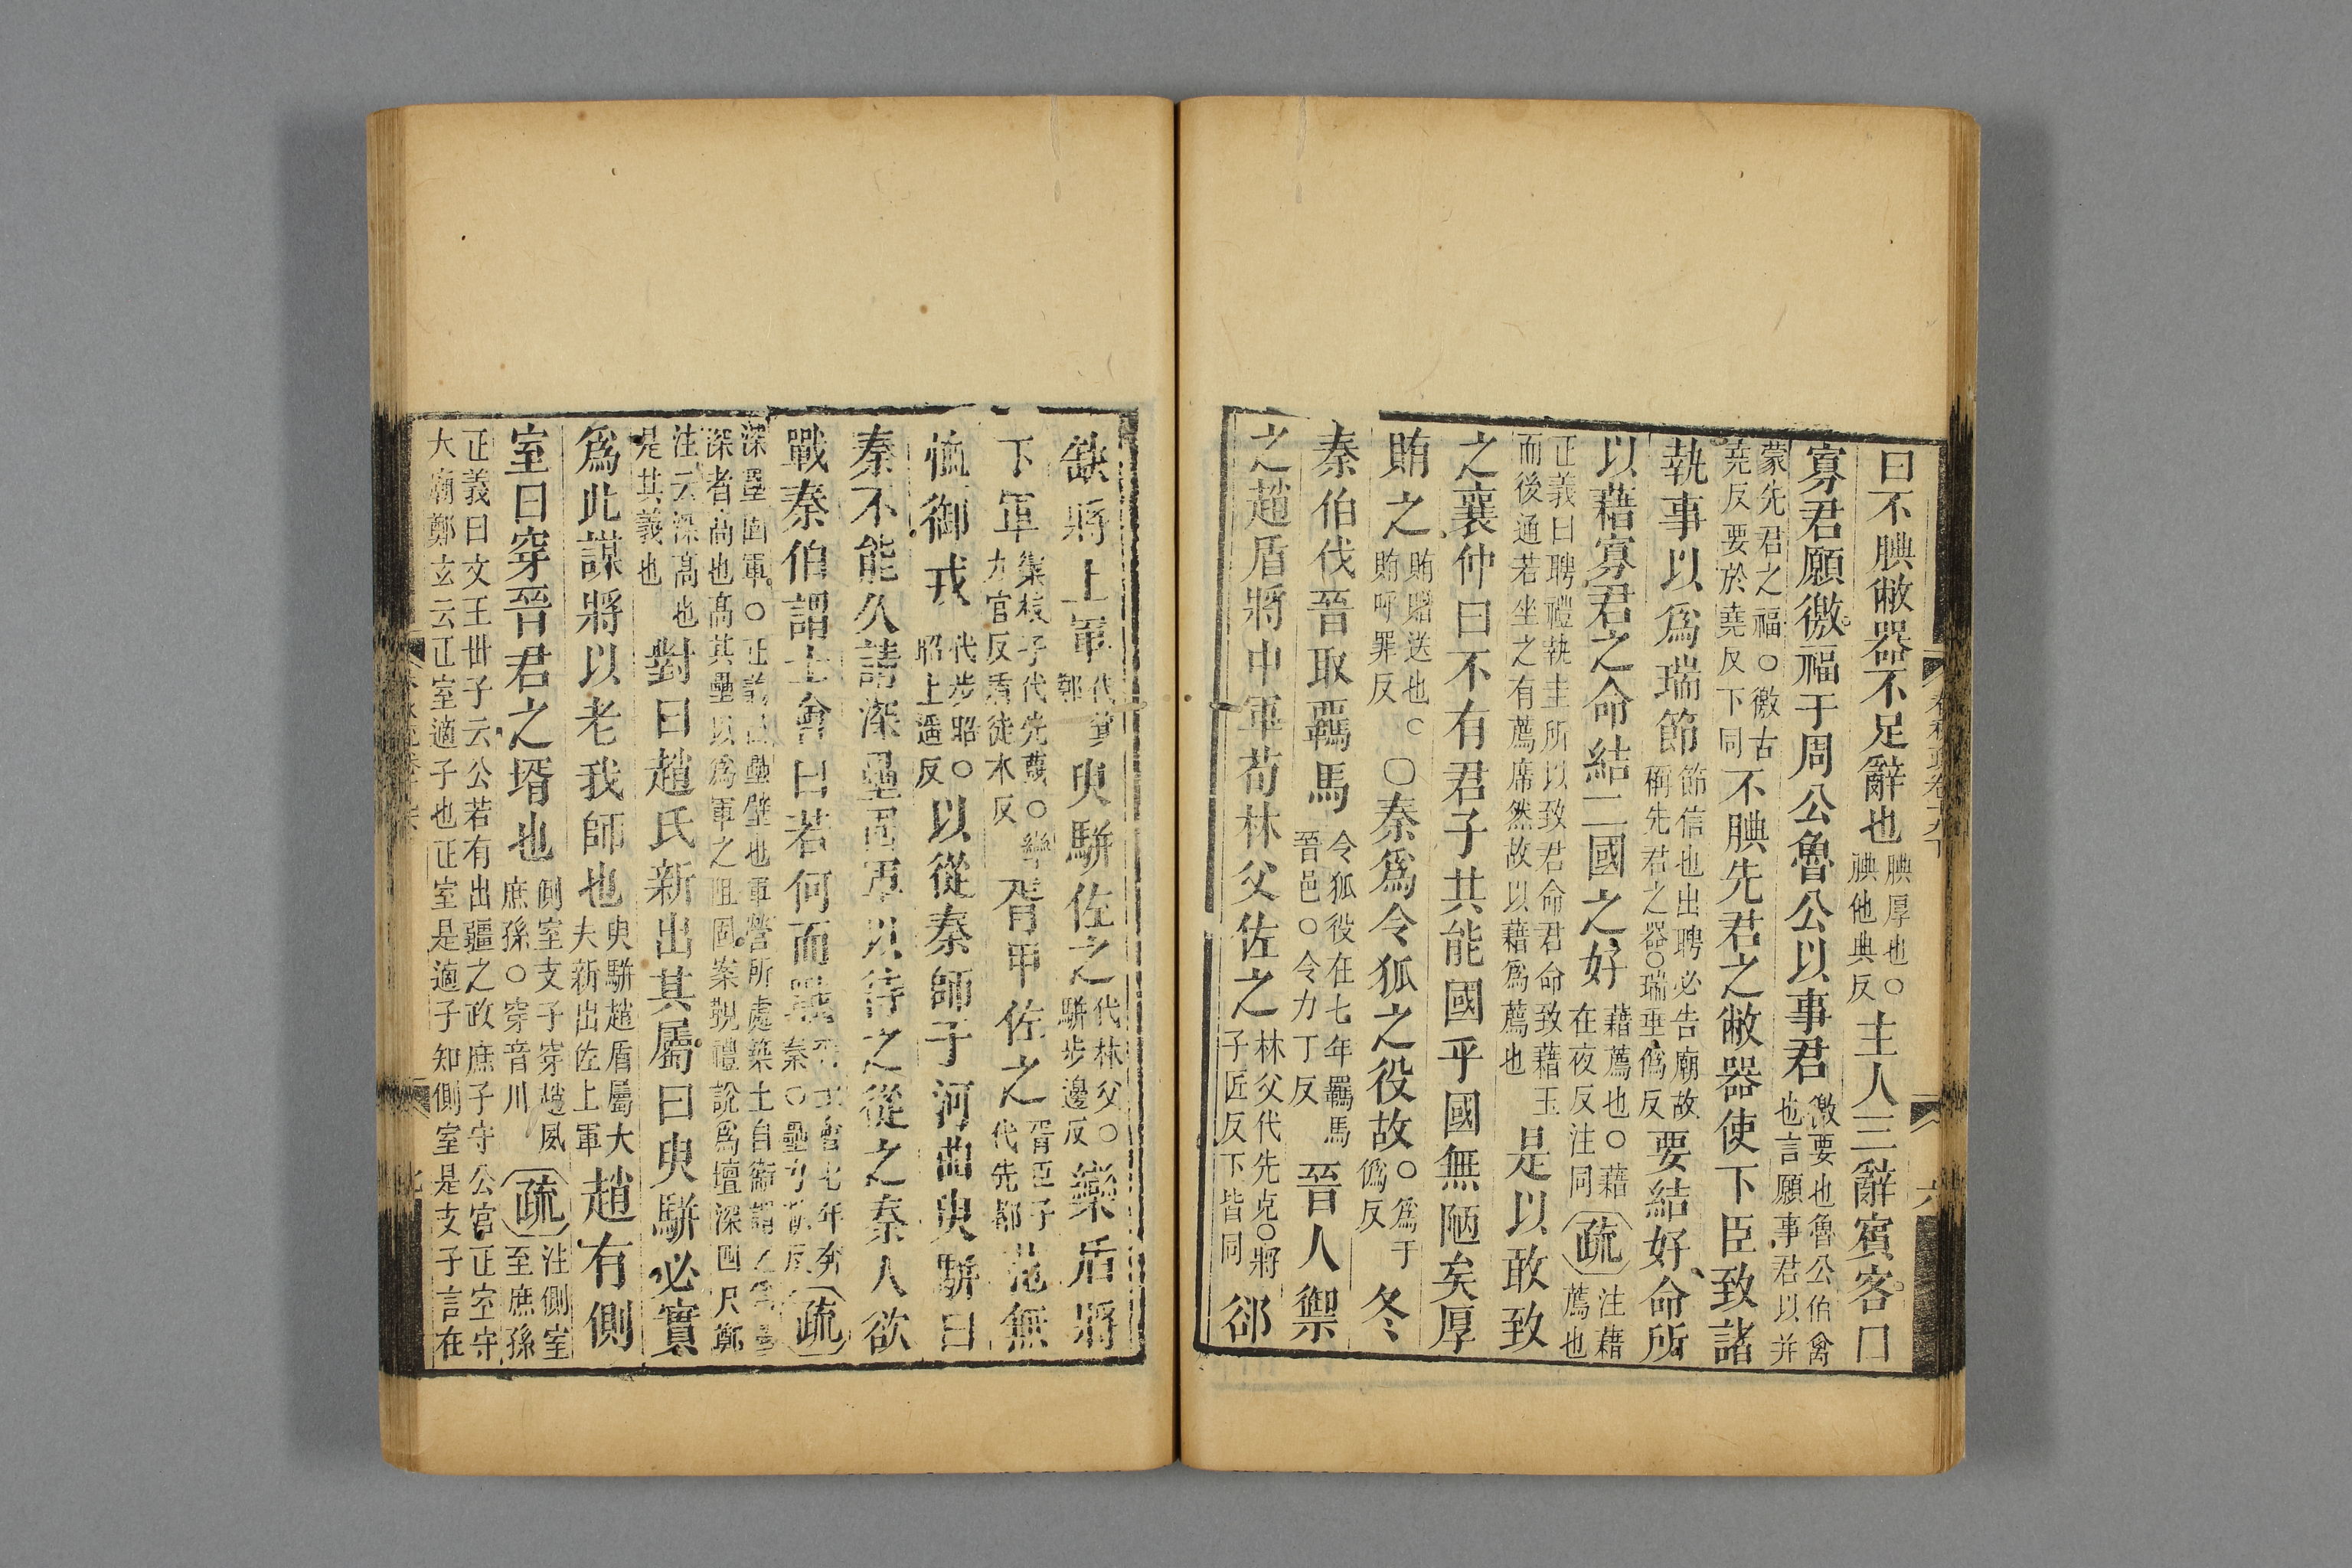 曰不腆敝器不足辭也腆厚也○腆他典反主人三辭賓客曰
寡君願徼福于周公魯公以事君徼要也魯公伯禽也言願事君以并
蒙先君之福○徼古堯反要於堯反下同不腆先君之敝器使下臣致諸
執事以爲瑞節節信也出聘必告廟故稱先君之器○瑞垂僞反要結好命所
以藉寡君之命結二國之好藉薦也○藉在夜反注同疏注藉薦也
正義曰聘禮執圭所以致君命君命致藉玉而後通若坐之有薦席然故以藉爲薦也是以敢致
之襄仲曰不有君子其能國乎國無陋矣厚
賄之賄贈送也○賄呼罪反○秦爲令狐之役故○爲于僞反冬
秦伯伐晉取羈馬令狐役在七年羈馬晉邑○令力丁反晉人禦
之趙盾將中軍荀林父佐之林父代先克○將子匠反下皆同郤
缺將上軍代箕鄭臾駢佐之代林父○駢步邊反欒盾將
下軍欒枝子代先蔑○欒力官反盾徒本反胥甲佐之胥臣子代先都范無
恤御戎代步昭○昭上遥反以從秦師于河曲臾駢曰
秦不能久請深壘固軍以待之從之秦人欲
戰秦伯謂士會曰若何而戰士會七年奔秦○壘力軌反疏
深壘固軍○正義曰壘壁也軍營所處築土自衞謂之爲壘深者高也高其壘以爲軍之阻固案覲禮說爲壇深四尺鄭
注云深高也是其義也對曰趙氏新出其屬曰臾駢必實
爲此謀將以老我師也臾駢趙盾屬大夫新出佐上軍趙有側
室曰穿晉君之壻也側室支子穿趙夙庶孫○穿音川疏注側室至庶孫
正義曰文王世子云公若有出疆之政庶子守公宮正室守大廟鄭玄云正室適子也正室是適子知側室是支子言在